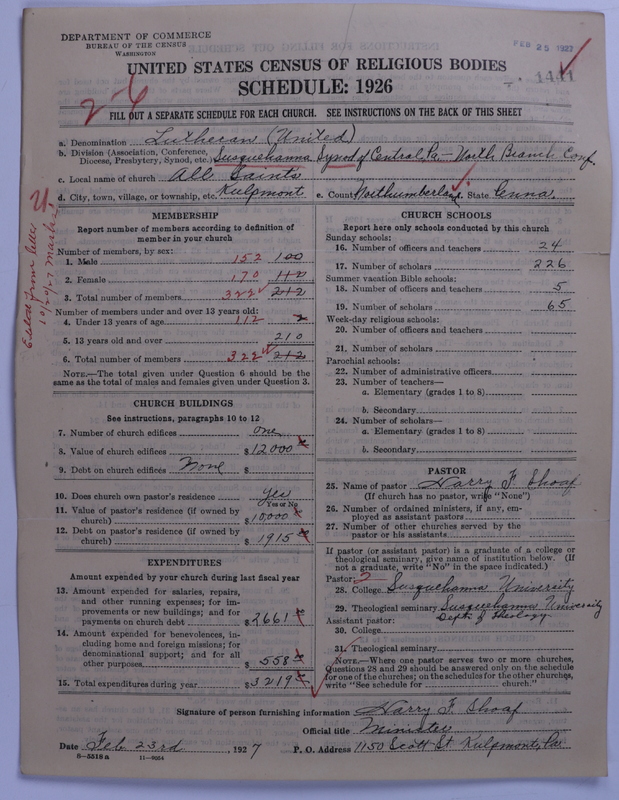 DEPARTMENT OF COMMERCE
BUREAU OF THE CENSUS
WASHINGTON
FEB 25 1927
1441
UNITED STATES CENSUS OF RELIGIOUS BODIES
SCHEDULE: 1926
2-6
FILL OUT A SEPARATE SCHEDULE FOR EACH CHURCH. SEE INSTRUCTIONS ON THE BACK OF THIS SHEET
a. Denomination Lutheran (United)
b. Division (Association, Conference, Diocese, Presbytery, Synod, etc.) Susquehanna Synod of Central Pa - North Branch Conf.
c. Local name of church All Saints
d. City, town, village, or township, etc. Kulpmont e. County Northumberland. State Penna.
MEMBERSHIP
Report number of members according to definition of
member in your church
Number of members, by sex:
1. Male 152 100
2. Female 170 112
3. Total number of members 322 212
Number of members under and over 13 years old:
4. Under 13 years of age 112 2
5. 13 years old and over 210
6. Total number of members 322 212
NOTE.—The total given under Question 6 should be the
same as the total of males and females given under Question 3.
CHURCH BUILDINGS
See instructions, paragraphs 10 to 12
7. Number of church edifices one
8. Value of church edifices $12000
9. Debt on church edifices None $
10. Does church own pastor's residence yes
Yes or No
11. Value of pastor's residence (if owned by
church) $10,000
12. Debt on pastor's residence (if owned by
church) $1915
EXPENDITURES
Amount expended by your church during last fiscal year
13. Amount expended for salaries, repairs,
and other running expenses; for im-
provements or new buildings; and for
payments on church debt $2661
14. Amount expended for benevolences, in-
cluding home and foreign missions; for
denominational support; and for all
other purposes $558
15. Total expenditures during year $3219
CHURCH SCHOOLS
Report here only schools conducted by this church
Sunday schools:
16. Number of officers and teachers 24
17. Number of scholars 226
Summer vacation Bible schools:
18. Number of officers and teachers 5
19. Number of scholars 65
Week-day religious schools:
20. Number of officers and teachers
21. Number of scholars
Parochial schools:
22. Number of administrative officers
23. Number of teachers—
a. Elementary (grades 1 to 8)
b. Secondary
24. Number of scholars—
a. Elementary (grades 1 to 8)
b. Secondary
PASTOR
25. Name of pastor Harry F. Shoaf
(If church has no pastor, write "None")
26. Number of ordained ministers, if any, em-
ployed as assistant pastors
27. Number of other churches served by the
pastor or his assistants
If pastor (or assistant pastor) is a graduate of a college or
theological seminary, give name of institution below. (If
not a graduate, write "No" in the space indicated.)
Pastor: 2
28. College Susquehanna University
29. Theological seminary Susquehanna University
Dept. of Theology
Assistant pastor:
30. College
31. Theological seminary
NOTE.—Where one pastor serves two or more churches,
Questions 28 and 29 should be answered only on the schedule
for one of the churches; on the schedules for the other churches,
write "See schedule for church."
Signature of person furnishing information Harry F. Shoaf
Official title Minister
Date Feb. 23rd, 1927 P. O. Address 1150 Scott St Kulpmont, Pa
8—5518 a 11—9054